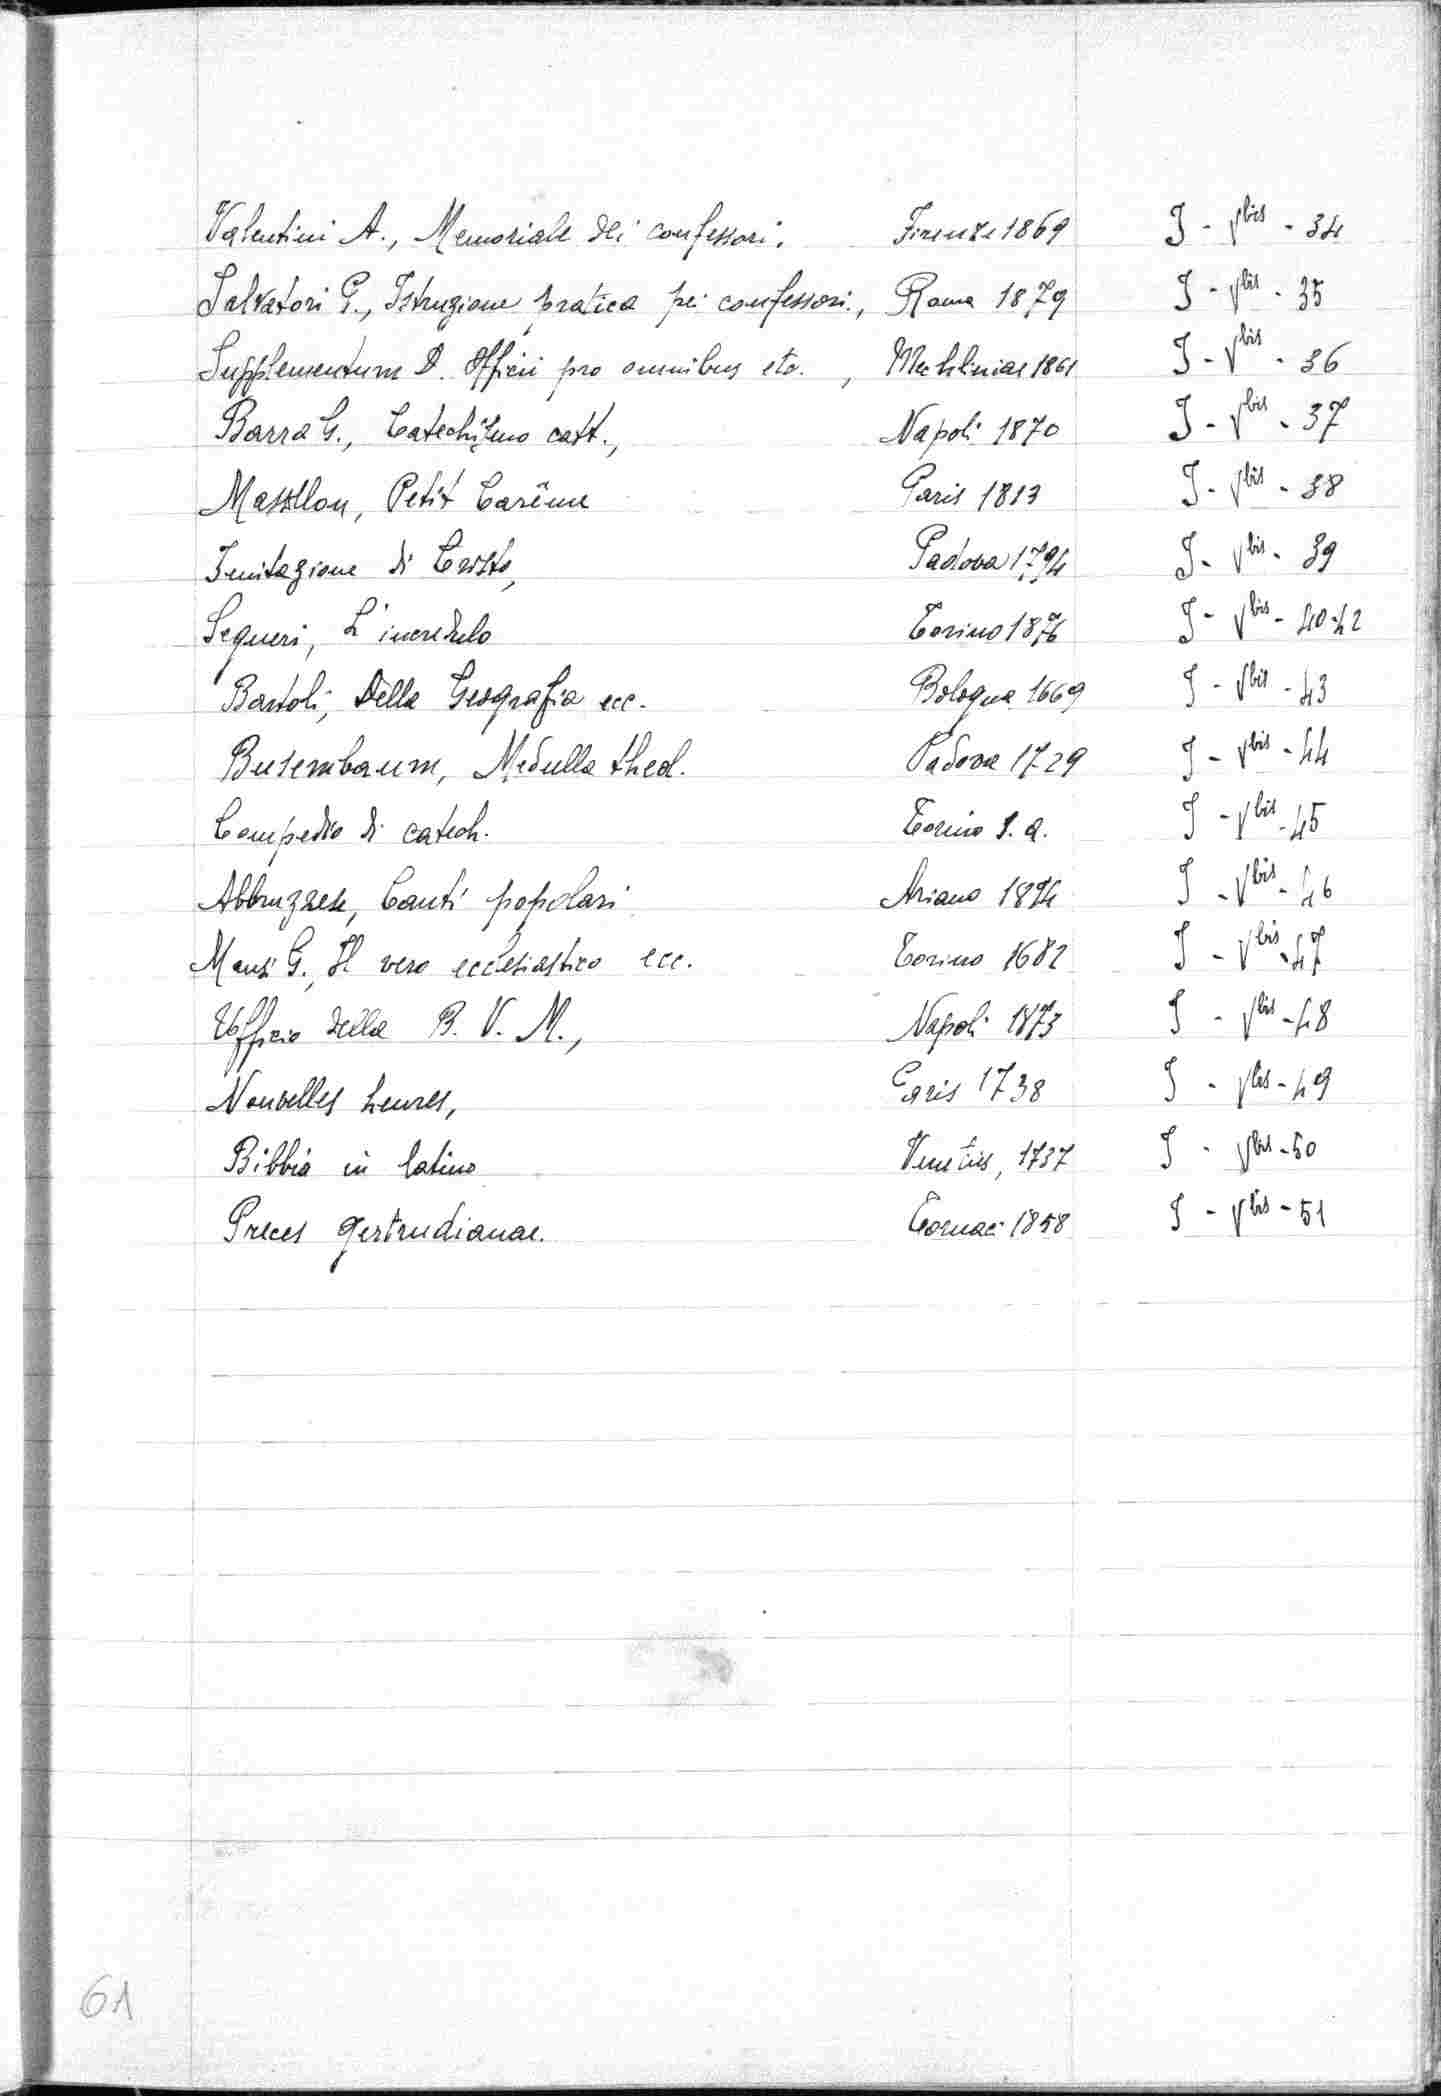 Valentini A., Memoriale dei confessori, Firenze 1869 I - Vbis - 34
Salvatori G., Istruzione pratica pei confessori., Roma 1879 I - Vbis - 35
Supplementum D. Officii pro omnibus etc. , Mechliniae 1861 I - Vbis - 36
Barra G., Catechismo catt., Napoli 1870 I - Vbis - 37
Massillon, Petit Carême Paris 1813 I - Vbis - 38
Imitazione di Cristo, Padova 1794 I - Vbis - 39
Segneri, L'incredulo Torino 1876 I - Vbis - 40-42
Bartoli, Della Geografia ecc. Bologna 1669 I - Vbis - 43
Busembaum, Medulla theol. Padova 1729 I - Vbis - 44
Compedio di catech. Torino s. a. I - Vbis - 45
Abbruzzese, Canti popolari Ariano 1894 I - Vbis - 46
Mansi G., Il vero ecclesiastico ecc. Torino 1682 I - Vbis - 47
Ufficio della B. V. M., Napoli 1873 I - Vbis - 48
Nouvelles heures, Paris 1738 I - Vbis - 49
Bibbia in latino Venetiis, 1737 I - Vbis - 50
Preces gertrudianae. Tornaci 1858 I - Vbis - 51
61